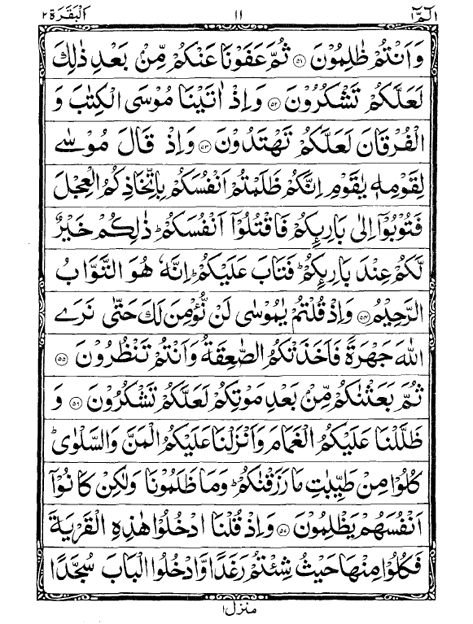 الٓمّٓ ١ ١١ اَلْبَقَرَة ٢
وَاَنْتُمْ ظٰلِمُوْنَ ﴿٥١﴾ ثُمَّ عَفَوْنَا عَنْكُمْ مِّنْۢ بَعْدِ ذٰلِكَ
لَعَلَّكُمْ تَشْكُرُوْنَ ﴿٥٢﴾ وَاِذْ اٰتَيْنَا مُوْسَى الْكِتٰبَ وَ
الْفُرْقَانَ لَعَلَّكُمْ تَهْتَدُوْنَ ﴿٥٣﴾ وَاِذْ قَالَ مُوْسٰى
لِقَوْمِهٖ يٰقَوْمِ اِنَّكُمْ ظَلَمْتُمْ اَنْفُسَكُمْ بِاتِّخَاذِكُمُ الْعِجْلَ
فَتُوْبُوْٓا اِلٰى بَارِئِكُمْ فَاقْتُلُوْٓا اَنْفُسَكُمْ ؕ ذٰلِكُمْ خَيْرٌ
لَّكُمْ عِنْدَ بَارِئِكُمْ ؕ فَتَابَ عَلَيْكُمْ ؕ اِنَّهٗ هُوَ التَّوَّابُ
الرَّحِيْمُ ﴿٥٤﴾ وَاِذْ قُلْتُمْ يٰمُوْسٰى لَنْ نُّؤْمِنَ لَكَ حَتّٰى نَرَى
اللّٰهَ جَهْرَةً فَاَخَذَتْكُمُ الصّٰعِقَةُ وَاَنْتُمْ تَنْظُرُوْنَ ﴿٥٥﴾
ثُمَّ بَعَثْنٰكُمْ مِّنْۢ بَعْدِ مَوْتِكُمْ لَعَلَّكُمْ تَشْكُرُوْنَ ﴿٥٦﴾ وَ
ظَلَّلْنَا عَلَيْكُمُ الْغَمَامَ وَاَنْزَلْنَا عَلَيْكُمُ الْمَنَّ وَالسَّلْوٰى ؕ
كُلُوْا مِنْ طَيِّبٰتِ مَا رَزَقْنٰكُمْ ؕ وَمَا ظَلَمُوْنَا وَلٰكِنْ كَانُوْٓا
اَنْفُسَهُمْ يَظْلِمُوْنَ ﴿٥٧﴾ وَاِذْ قُلْنَا ادْخُلُوْا هٰذِهِ الْقَرْيَةَ
فَكُلُوْا مِنْهَا حَيْثُ شِئْتُمْ رَغَدًا وَّادْخُلُوا الْبَابَ سُجَّدًا
منزل ١